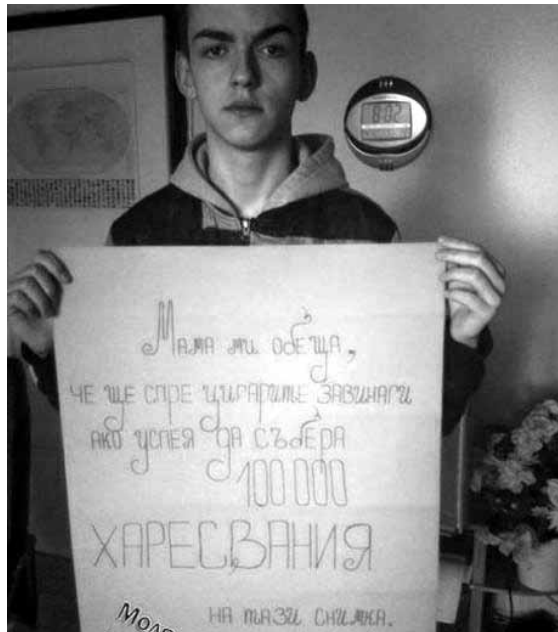 8:02
Мама ми обеща,
че ще спре цигарите завинаги
ако успея да събера
100 000
ХАРЕСВАНИЯ
на тази снимка.
Моля